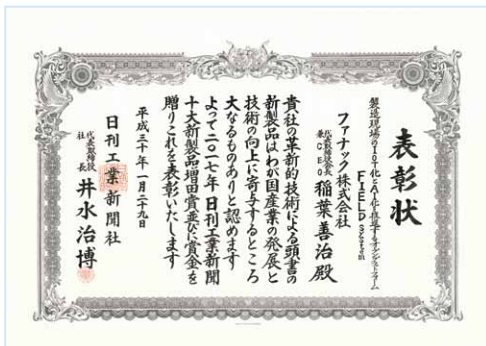 表彰状
製造現場のIoT化とAI化を推進するオープンプラットフォーム
FIELD system
ファナック株式会社
代表取締役会長
兼CEO 稲葉善治殿
貴社の革新的技術による頭書の
新製品はわが国産業の発展と
技術の向上に寄与するところ
大なるものありと認めます
よって二〇一七年日刊工業新聞
十大新製品増田賞並びに賞金を
贈りこれを表彰いたします
平成三十年一月二十九日
日刊工業新聞社
代表取締役
社長 井水治博